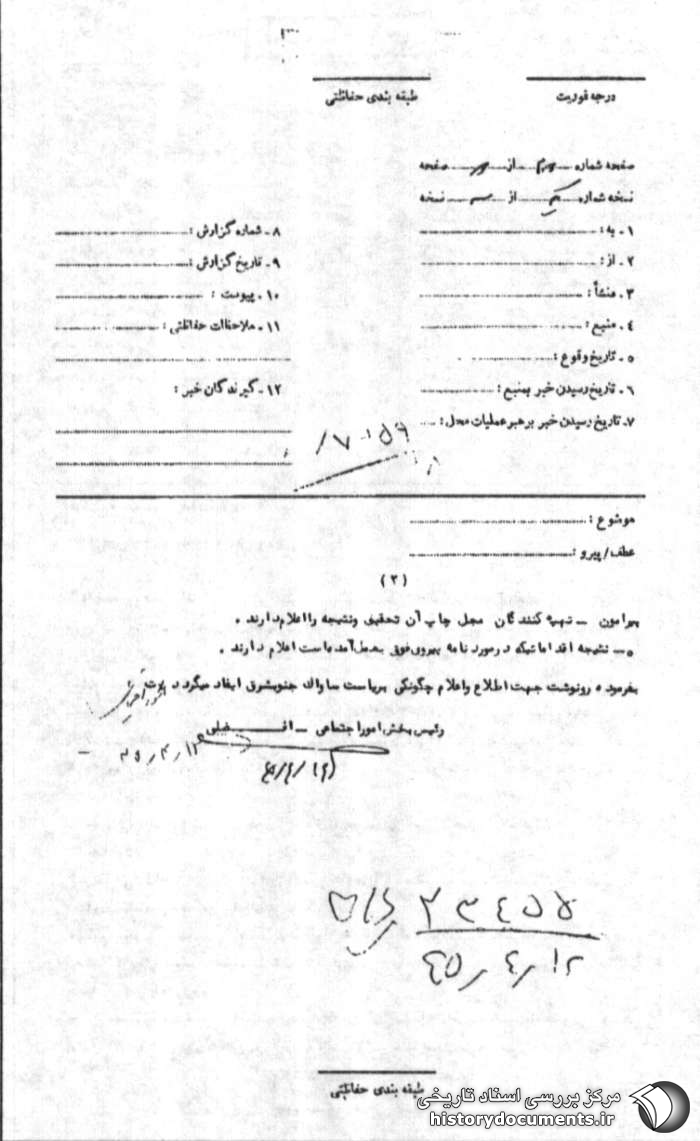 درجه فوریت
طبقه بندی حفاظتی
صفحه شماره از صفحه
نسخه شماره از نسخه
۱ـ به:
۲ـ از:
۳ـ منشأ:
۴ـ منبع:
۵ـ تاریخ وقوع:
۶ـ تاریخ رسیدن خبر بمنبع:
۷ـ تاریخ رسیدن خبر برهبر عملیات محل:
۸ـ شماره گزارش:
۹ـ تاریخ گزارش:
۱۰ـ پیوست:
۱۱ـ ملاحظات حفاظتی:
۱۲ـ گیرندگان خبر:
موضوع:
عطف/پیرو:
(۲)
پیرامون ـ تهیه کنندگان محل چاپ آن تحقیق ونتیجه رااعلام دارند .
۵ـ نتیجه اقداماتیکه درمورد نامه پیروی فوق بعمل آمده است اعلام دارند .
بفرموده رونوشت جهت اطلاع واعلام چگونگی بریاست ساواک جنوبشرق ایفاد میگردد
رئیس بخش امور اجتماعی ـ افضلی
۴۵/۴/۱۲
طبقه بندی حفاظتی
مرکز بررسی اسناد تاریخی
historydocuments.ir